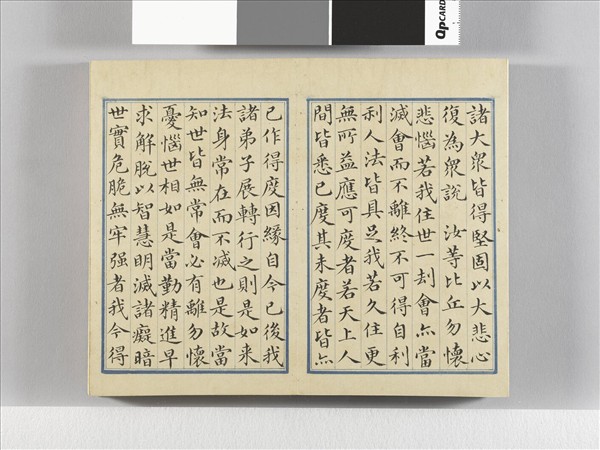 諸大眾皆得堅固以大悲心
復為眾說 汝等比丘勿懷
悲惱若我住世一刦會亦當
滅會而不離終不可得自利
利人法皆具足我若久住更
無所益應可度者若天上人
間皆悉已度其未度者皆亦
已作得度因緣自今已後我
諸弟子展轉行之則是如来
法身常在而不滅也是故當
知世皆無常會必有離勿懷
憂惱世相如是當勤精進早
求解脫以智慧明滅諸癡暗
世實危脆無牢强者我今得
QpCARD